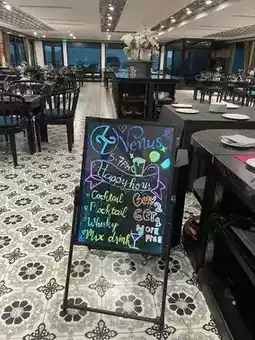 Venus
5-7PM
Happy hours
Cocktail
Mocktail
Whisky
Mix drink
Get 1
Get 1
More
Free